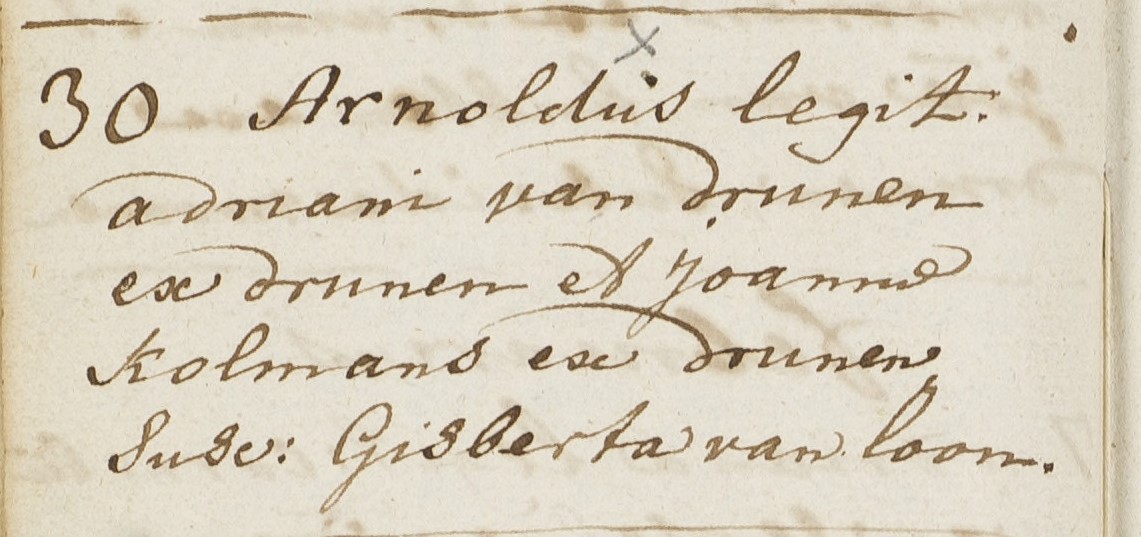 30 Arnoldus legit.
adriani van drunen
ex drunen et Joanna
Kolmans ex drunen
Susc: Gisberta van loon.